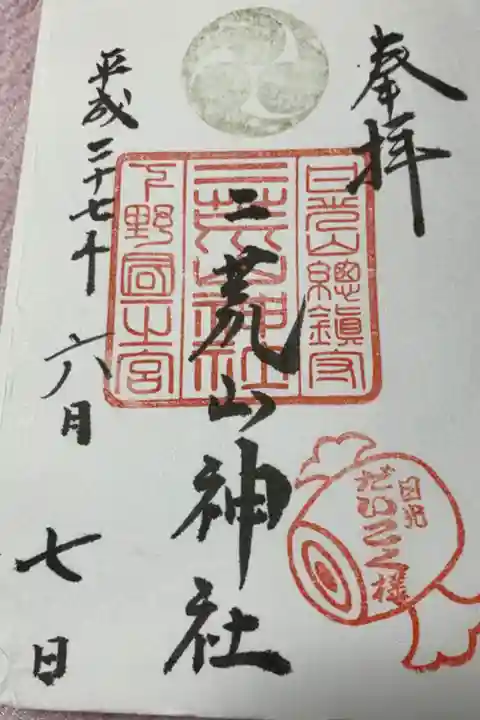 奉拝
日光山總鎮守
二荒山神社
二荒山神社
下野國一之宮
日光
だいこく様
平成二十七年
六月
七日